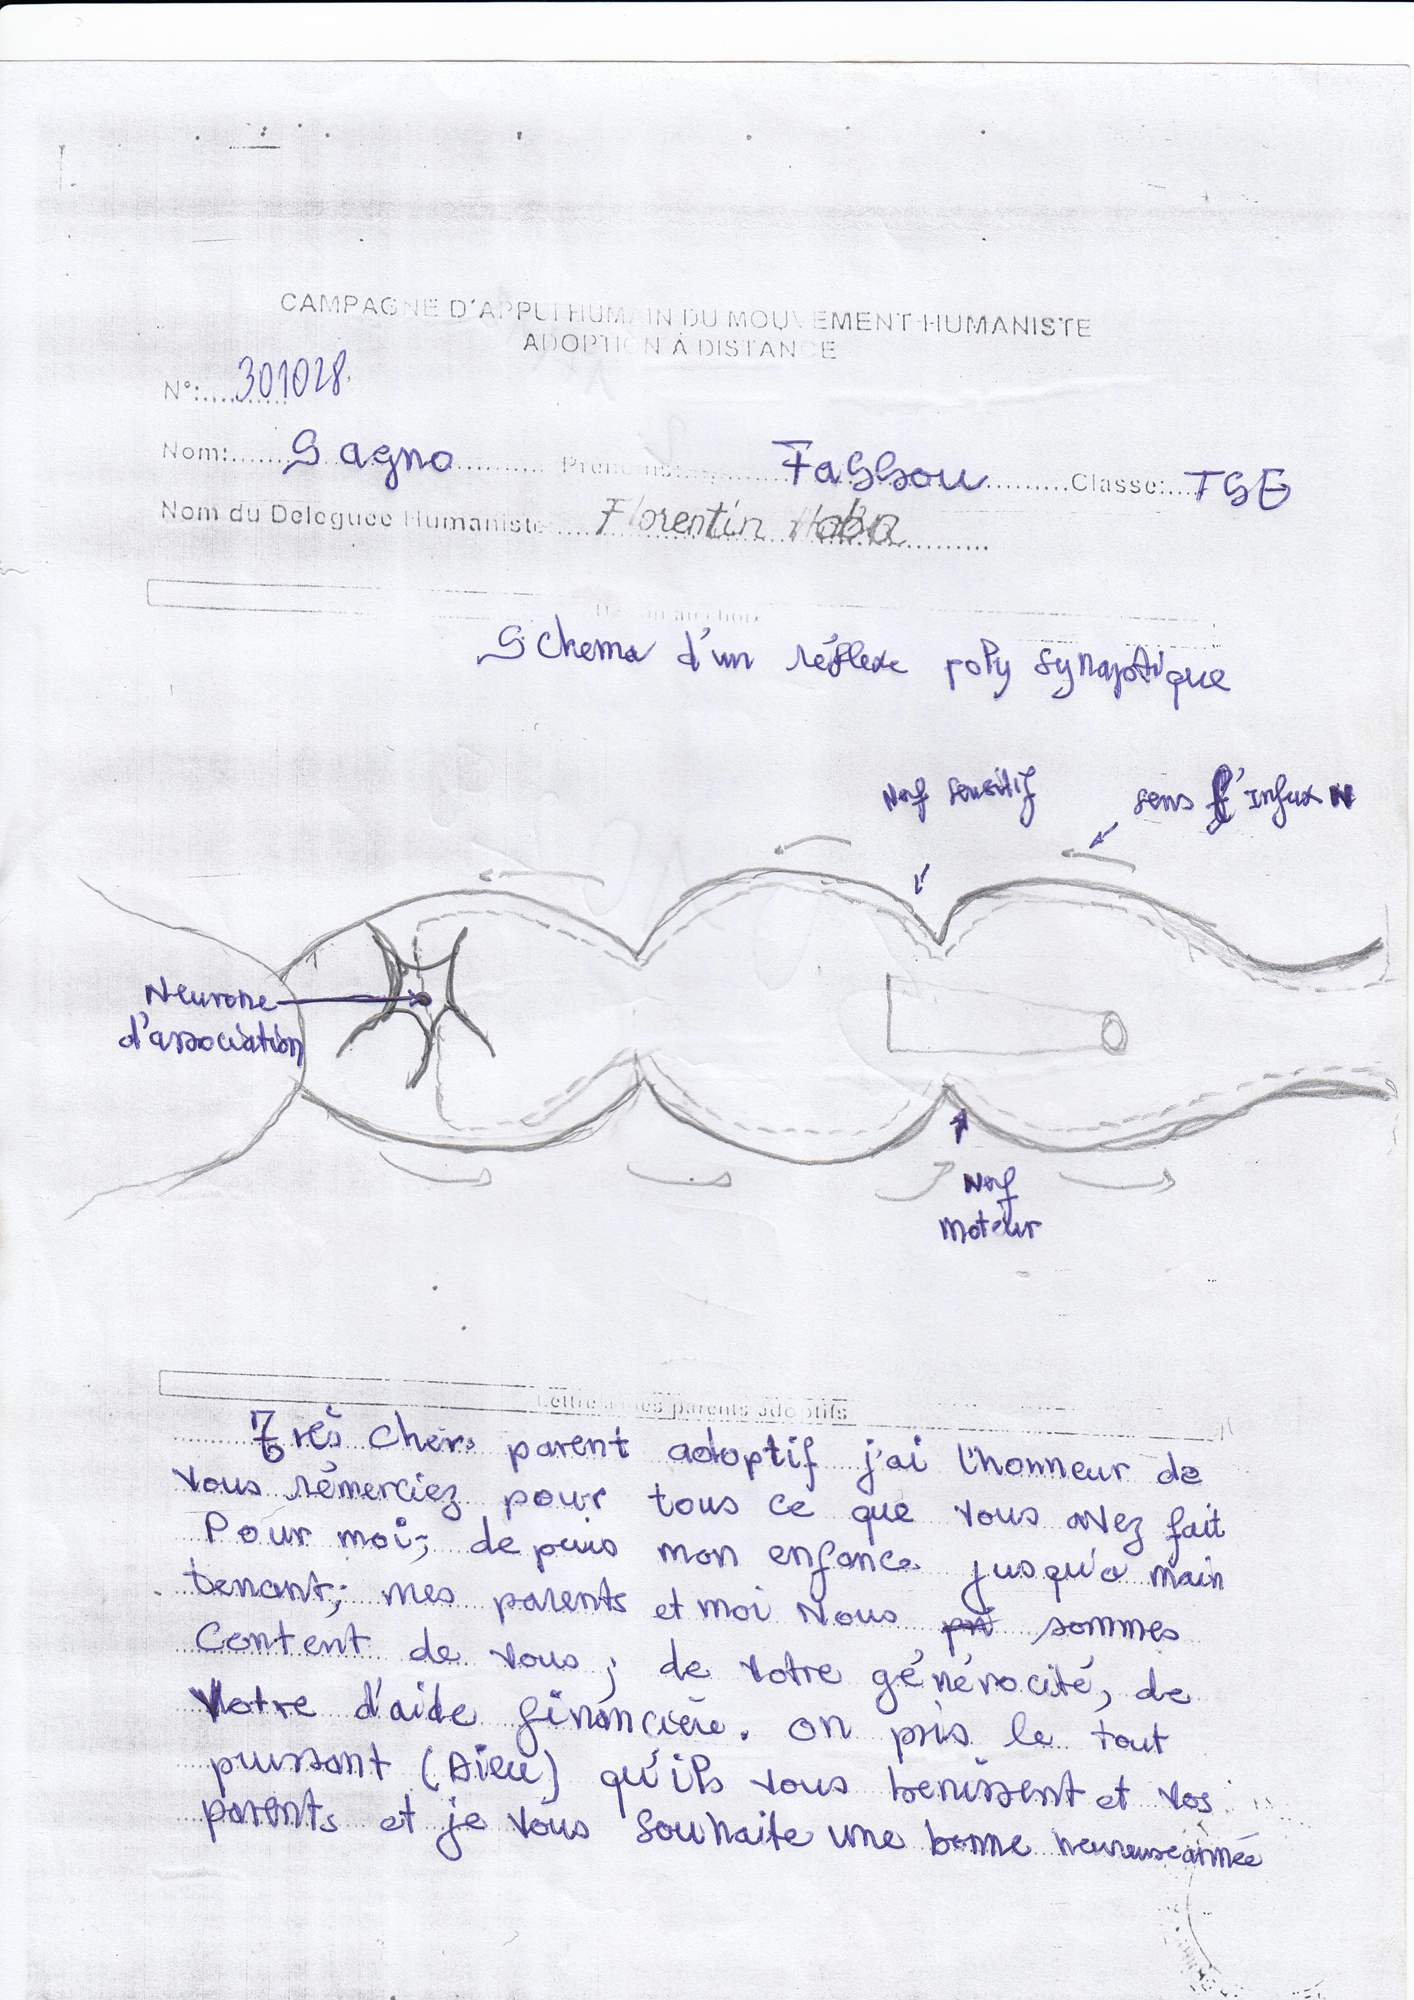 CAMPAGNE D'APPUI HUMAIN DU MOUVEMENT HUMANISTE
ADOPTION À DISTANCE
N°: 301028
Nom: Sagno Prénoms: Fassou Classe: TSE
Nom du Délégué Humaniste Florentin Haba
Dessin au choix
Schema d'un réflexe poly synaptique
Nerf sensitif
sens l'Influx N
Neurone
d'association
Nerf
moteur
Lettre à mes parents adoptifs
Très Chers parent adoptif j'ai l'honneur de
vous rémerciez pour tous ce que vous avez fait
Pour moi; depuis mon enfance jusqu'a main
tenant; mes parents et moi Nous sommes
Content de vous; de votre générocité, de
Votre d'aide financière. on pris le tout
puissant (Dieu) qu'ils vous benissent et vos
parents et je vous souhaite une bonne heureuse année